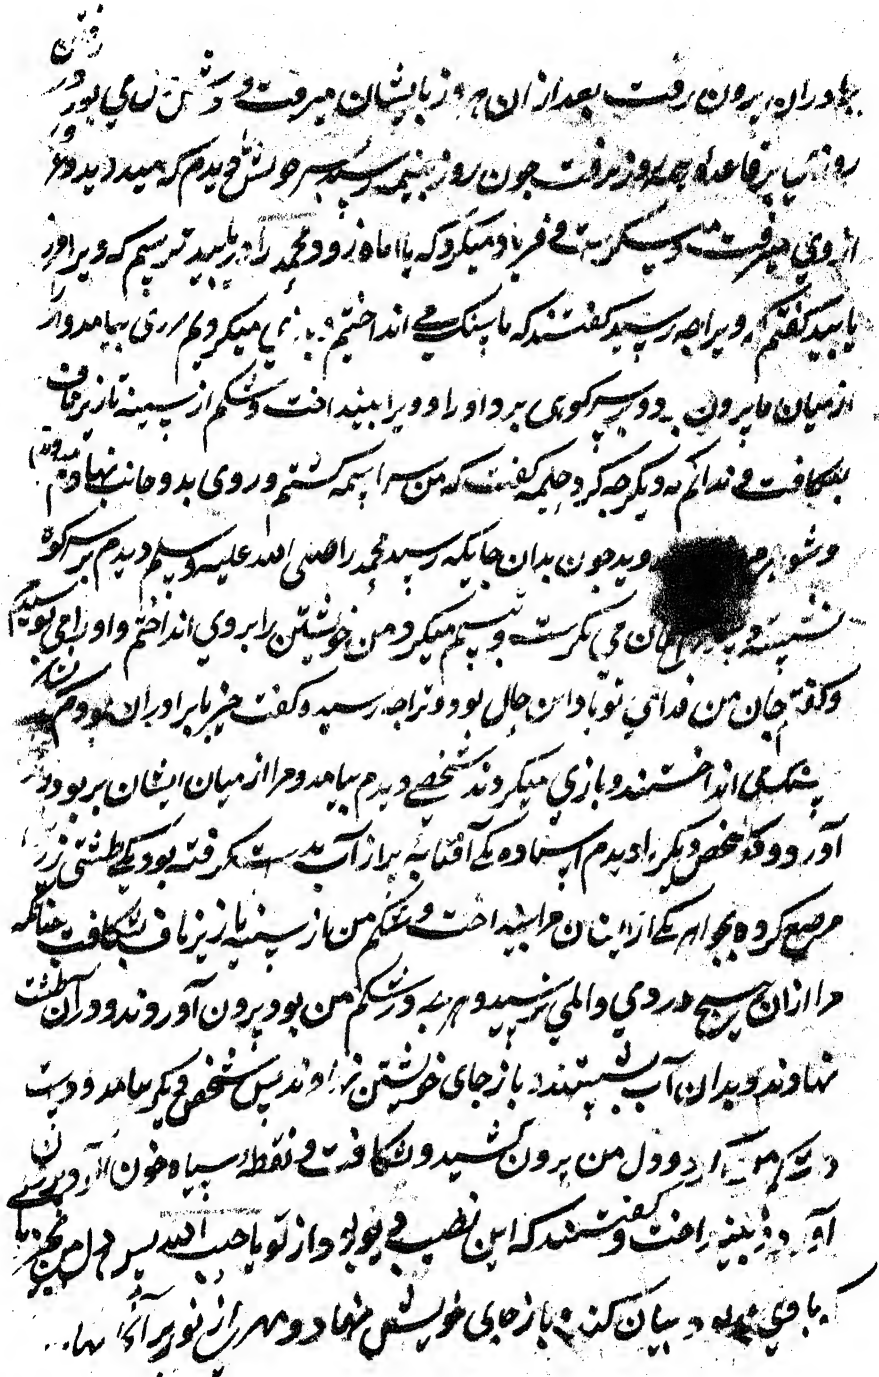 برادران بیرون رفت بعد از ان هر روز با یشان میرفت و می بود رفتن
روزی بر قاعده هر روز برفت چون روز بنیمه رسید پسر خویش را دیدم که میدوید و عرق
از وی میرفت و میگریست و فریاد میکرد که یا اماه زود محمد را دریابید ترسیم که ویرا در
یابید گفتم که ویرا چه رسید گفتند که ما سنک می انداختیم و بازی میکردیم مردی بیامد و او را
از میان ما بیرون برد و بر سر کوهی برد او را و ویرا بینداخت و شکم از سینه تا زیر ناف
بشکافت و ندانم که دیگر چه کرد حلیمه گفت که من سراسیمه گشتم و روی بدو جانب نهادم
و شوهر دوید چون بدان جایکه رسید محمد را صلی الله علیه وسلم دیدم بر سر کوه
نشسته و می نگرست و تبسم میکرد من خویشتن را بر وی انداختم و او را می بوسیدم
و گفتم جان من فدای تو باد این چه حال بود و ترا چه رسید و گفت خیر با برادران بودم
سنک می انداختند و بازی میکردند شخصی دیدم بیامد و مرا از میان ایشان بربود و
آورد و دو شخص دیگر را دیدم استاده یکی آفتابه پر از آب بدست گرفته بود و یکی طشتی زر
مرصع کرده بجواهر یکی از ایشان مرا بینداخت و شکم من از سینه تا زیر ناف بشکافت چنانکه
مرا ازان هیچ دردی و المی نرسید و هر چه در شکم من بود بیرون آوردند و دران طشت
نهادند و بدان آب بشستند و باز جای خویشتن نهادند پس شخص دیگر بیامد و دست
در شکم من کرد و دل من بیرون کشید و بشکافت و نقطه سیاه خون آلود بیرون
آورد و بینداخت و گفتند که این نصیب دیو بود از تو یا حبیب الله پس دل من بچیزی
که با وی بود بیاکند و باز جای خویش نهاد و مهری از نور بر آنجا نهاد